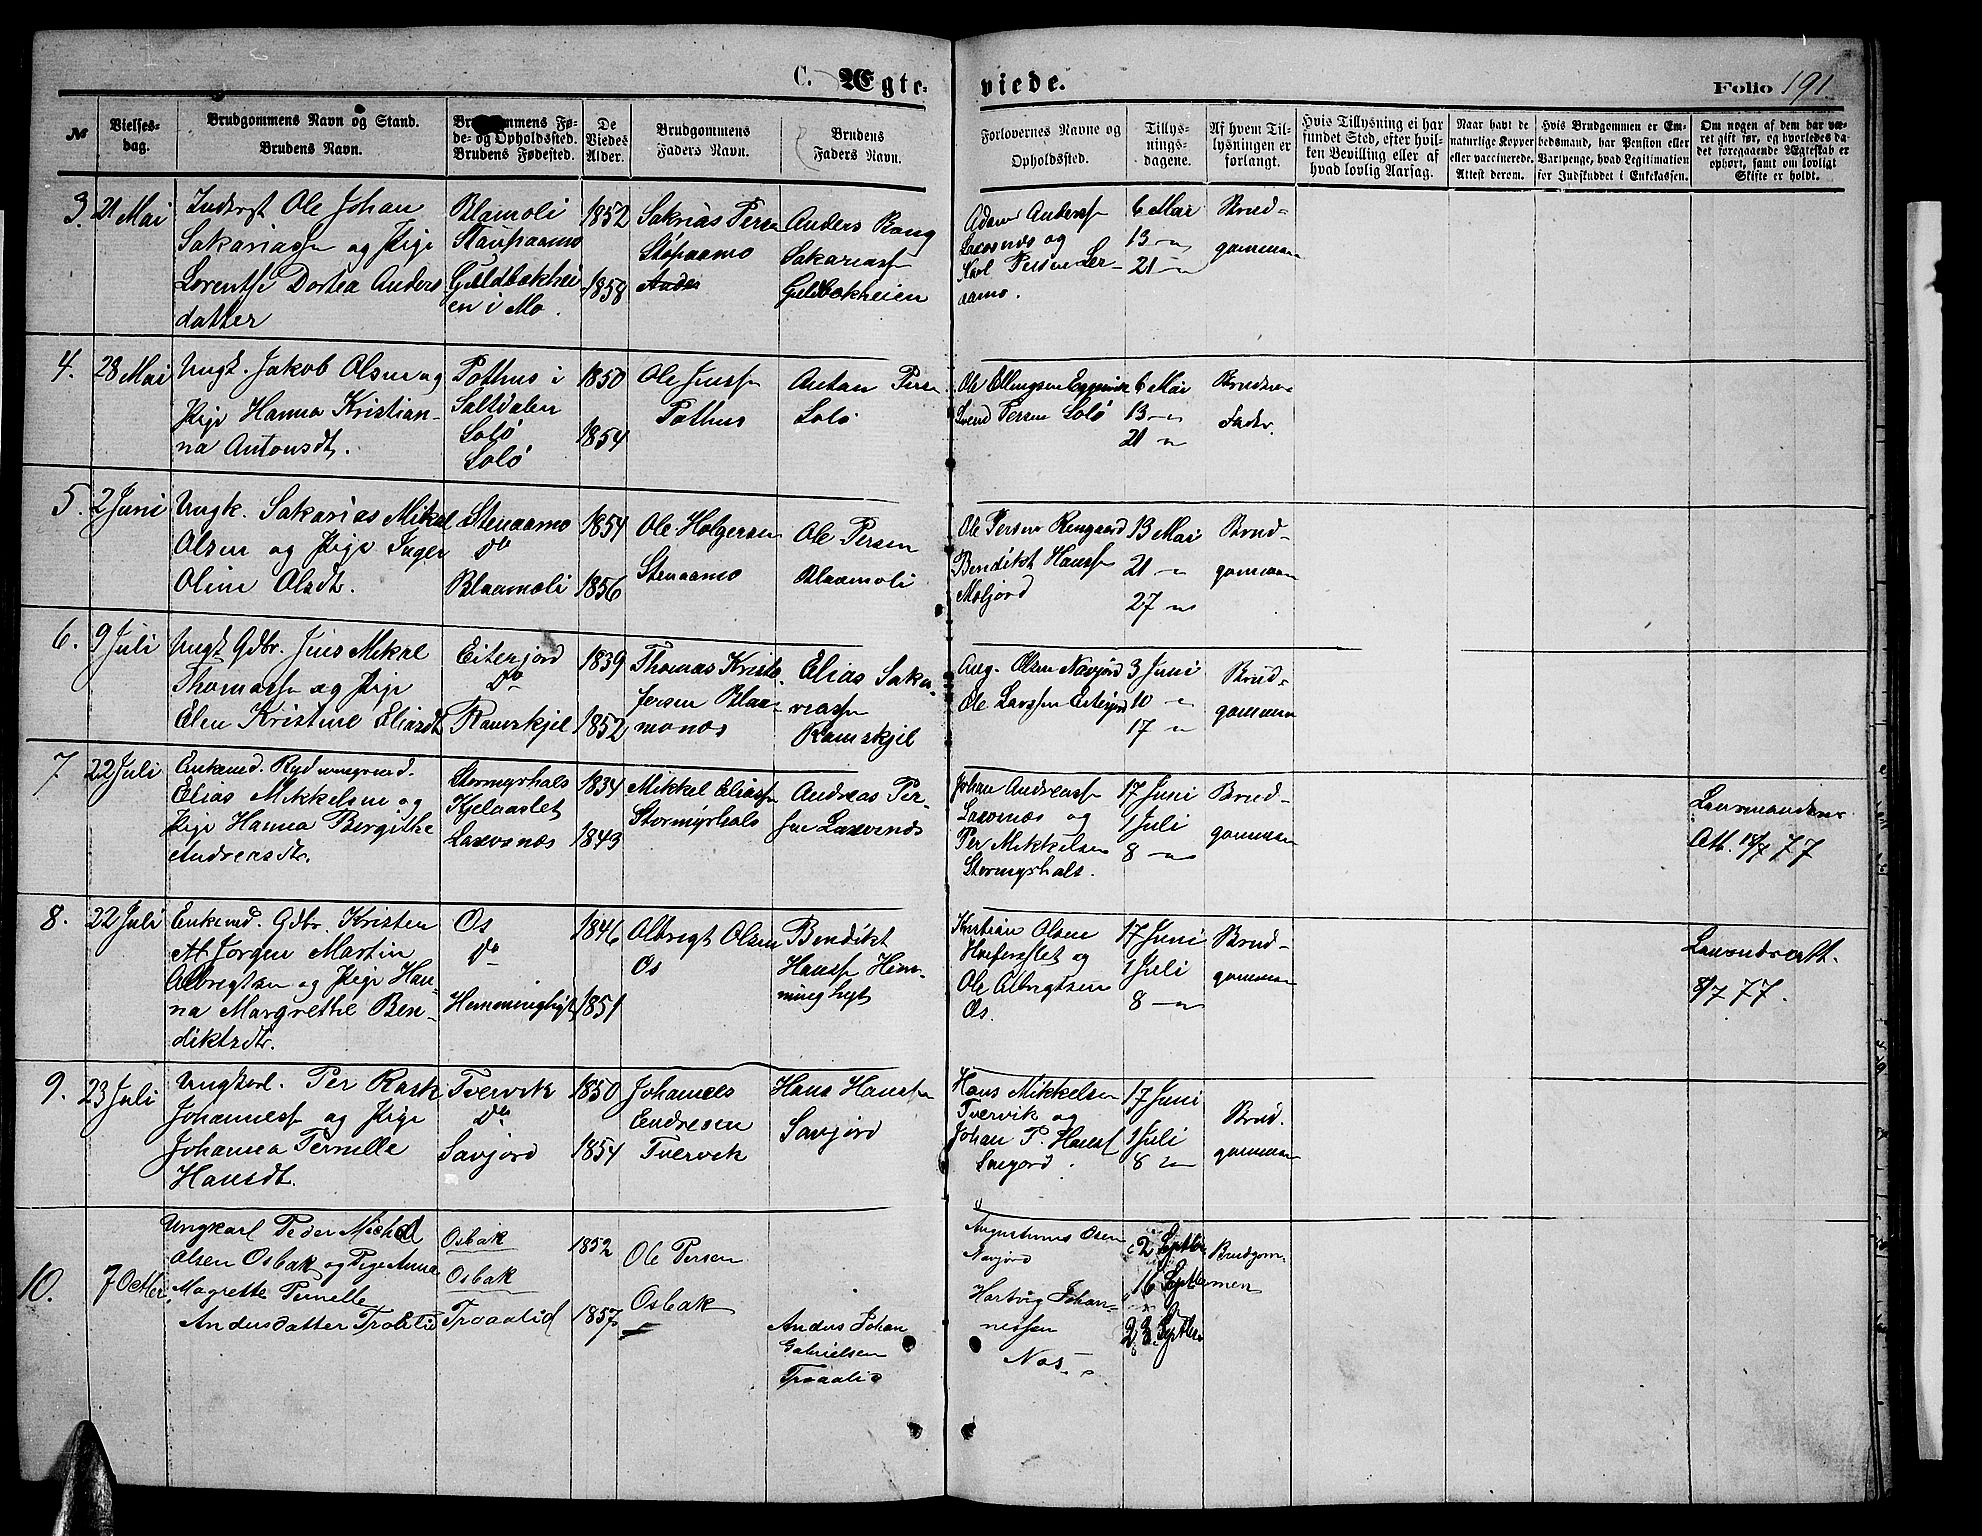 C. Ægteviede.
Folio 191
№
Vielses-
dag.
Brudgommens Navn og Stand.
Brudens Navn.
Brudgommens Fø-
de- og Opholdssted.
Brudens Fødested.
De
Viedes
Alder.
Brudgommens
Faders Navn.
Brudens
Faders Navn.
Forlovernes Navne og
Opholdssted.
Tillys-
nings-
dagene.
Af hvem Til-
lysningen er
forlangt.
Hvis Tillysning ei har
fundet Sted, efter hvil-
ken Bevilling eller af
hvad lovlig Aarsag.
Naar havt de
naturlige Kopper
eller vaccinerede.
Attest derom.
Hvis Brudgommen er Em-
bedsmand, har Pension eller
Vartpenge, hvad Legitimation
for Indskuddet i Enkekassen.
Om nogen af dem har væ-
ret gift før, og hvorledes da
det foregaaende Ægteskab er
ophørt, samt om lovligt
Skifte er holdt.
3. 21 Mai
Inderst Ole Johan
Sakariass og Pige
Lorentse Dortea Anders
datter
Blamoli
Staupaamo
Guldbakhei
en i Mo.
1852
1858
Sakrias Persen
Støpaamo
Anders Bang
Sakariass
Guldbakheien
Adam Anderss
Laxosnæs og
Karl Persen Ler-
aamo.
6 Mai
13 —
21 —
Brud-
gommen
4. 28 Mai
Ungk. Jakob Olsen og
Pige Hanna Kristian-
na Antonsdt.
Pothus i
Saltdalen
Solø
Solø
1850
1854
Ole Jenss
Pothus
Antan Persen
Solø
Ole Ellingsen
Svend Persen Solø
6 Mai
13 —
21 —
Brudens
Fader.
5. 2 Juni
Ungk. Sakarias Mikal
Olsen og Pige Inger
Oline Olsdt.
Stenaamo
do
Blaamoli
1854
1856
Ole Holgersen
Stenaamo
Ole Persen
Blaamoli
Ole Persen Rengaard
Bendikt Hanss
Moljord
13 Mai
21 —
27 —
Brud-
gommen
6. 9 Juli
Ungk. Gdbr. Jens Mikal
Thomass og Pige
Elen Kristine Eliasdt
Eiterjord
do
Ramskjel
1839
1852
Thomas Kristo
fersen Blaa-
monæs
Elias Saka-
riass
Ramskjel
Aug. Olsen Navjord
Ole Larssen Eiterjord
3 Juni
10 —
17 —
Brud-
gommen
7 22 Juli
Enkemd. Rydningsmd.
Elias Mikkelsen og
Pige Hanna Bergithe
Andreasdtr.
Stormyrhals
Kjelaaslet
Laxosnæs
1834
1843
Mikkel Eliass
Stormyrhals
Andreas Per-
sen Laxosnæs
Johan Andreass
Laxosnæs og
Per Mikkelsen
Stormyrhals.
17 Juni
1 Juli
8 —
Brud-
gommen
Att. 18/7 77
8. 22 Juli
Enkemd. Gdbr. Kristen
Jørgen Martin
Albregtsen og Pige Han-
na Margrethe Ben-
diktsdtr.
Os
do
Hemminghyt
1846
1851
Albregt Olsen
Os
Bendikt
Hanss Hem-
minghyt
Kristian Olsen
og
Ole Albregtsen
Os.
17 Juni
1 Juli
8 —
Brud-
gommen
8/7 77.
9. 23 Juli
Ungkarl. Per Rask
Johanness og Pige
Johanna Pernelle
Hansdt.
Tvervik
do
Savjord
1850
1854
Johannes
Endresen
Tvervik
Hans Hanssen
Savjord
Hans Mikkelsen
Tvervik og
Johan P. Hanss
Savjord.
17 Juni
1 Juli
8 —
Brud-
gommen
10. 7 Octbr.
Ungkarl Peder Michal
Olsen Osbak og Pige Anne
Magrette Pernelle
Andersdatter Traalid
Osbak
Osbak
Traalid
1852
1857
Ole Persen
Osbak
Anders Johan
Gabrielsen
Traalid
Augustinus Olsen
Navjord
Hartvig Johan-
nessen
Nos
2 Septbr
16 Septbr
23 Septbr
Brudgom-
men